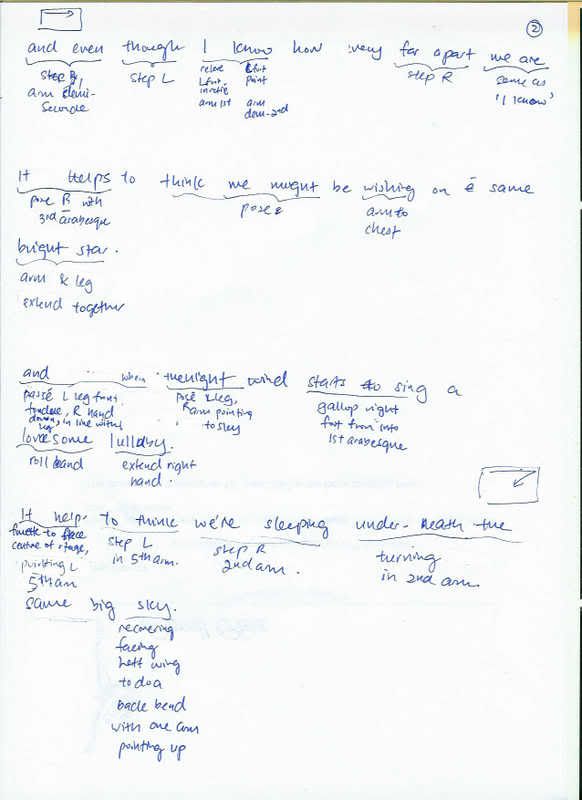 2
and even though I know how very far apart we are
step R, step L releve R foot step R same as
arm demi- L foot point 'I know'
seconde in retiré arm
arm 1st demi-2nd
It helps to think we might be wishing on é same
pose R with pose arm to
3rd arabesque chest
bright star.
arm & leg
extend together
and when the night wind starts to sing a
passé L leg front posé leg, gallop right
tendue, R hand R arm pointing foot front into
down, in line with to sky 1st arabesque
leg
lonesome lullaby.
roll hand extend right
hand.
It helps to think we're sleeping under-neath the
fouetté to face step L step R turning
centre of stage, in 5th arm. 2nd arm. in 2nd arm.
pointing L
5th arm
same big sky.
recovering
facing
left wing
to do a
back bend
with one arm
pointing up